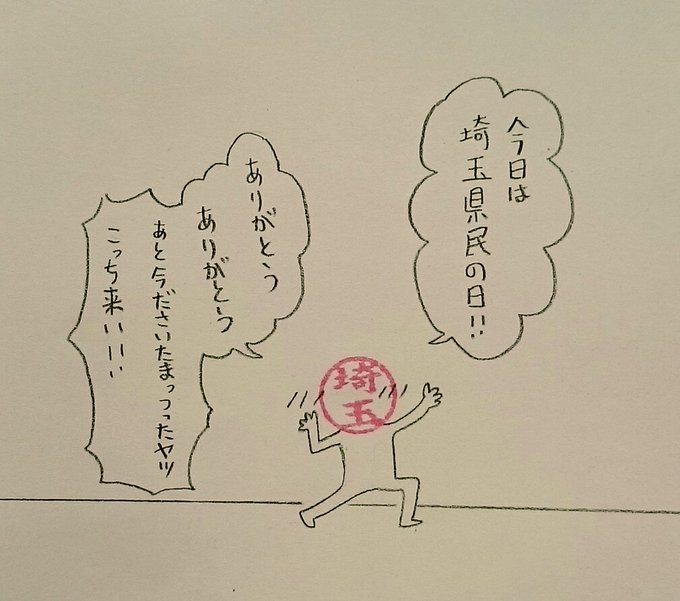 今日は
埼玉県民の日!!
ありがとう
ありがとう
あと今ださいたまっつったヤツ
こっち来い!!!!
埼
玉